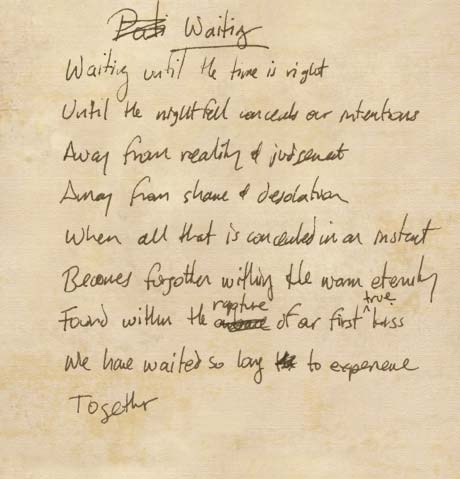 Waiting
Waiting until the time is right
Until the nightfall conceals our intentions
Away from reality & judgement
Away from shame & desolation
When all that is concealed in an instant
Becomes forgotten withing the warm eternity
Found within the rapture of our first true kiss
We have waited so long to experience
Together